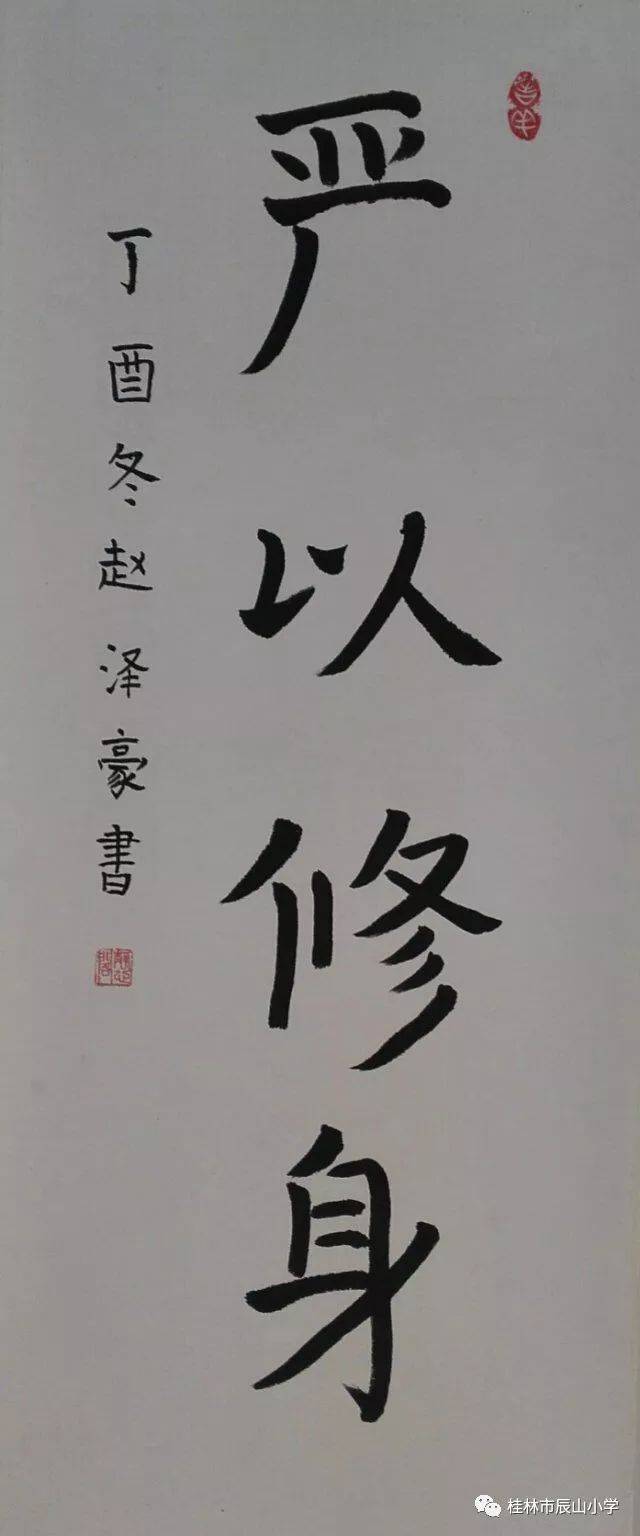 严以修身
丁酉冬赵泽豪書
桂林市辰山小学